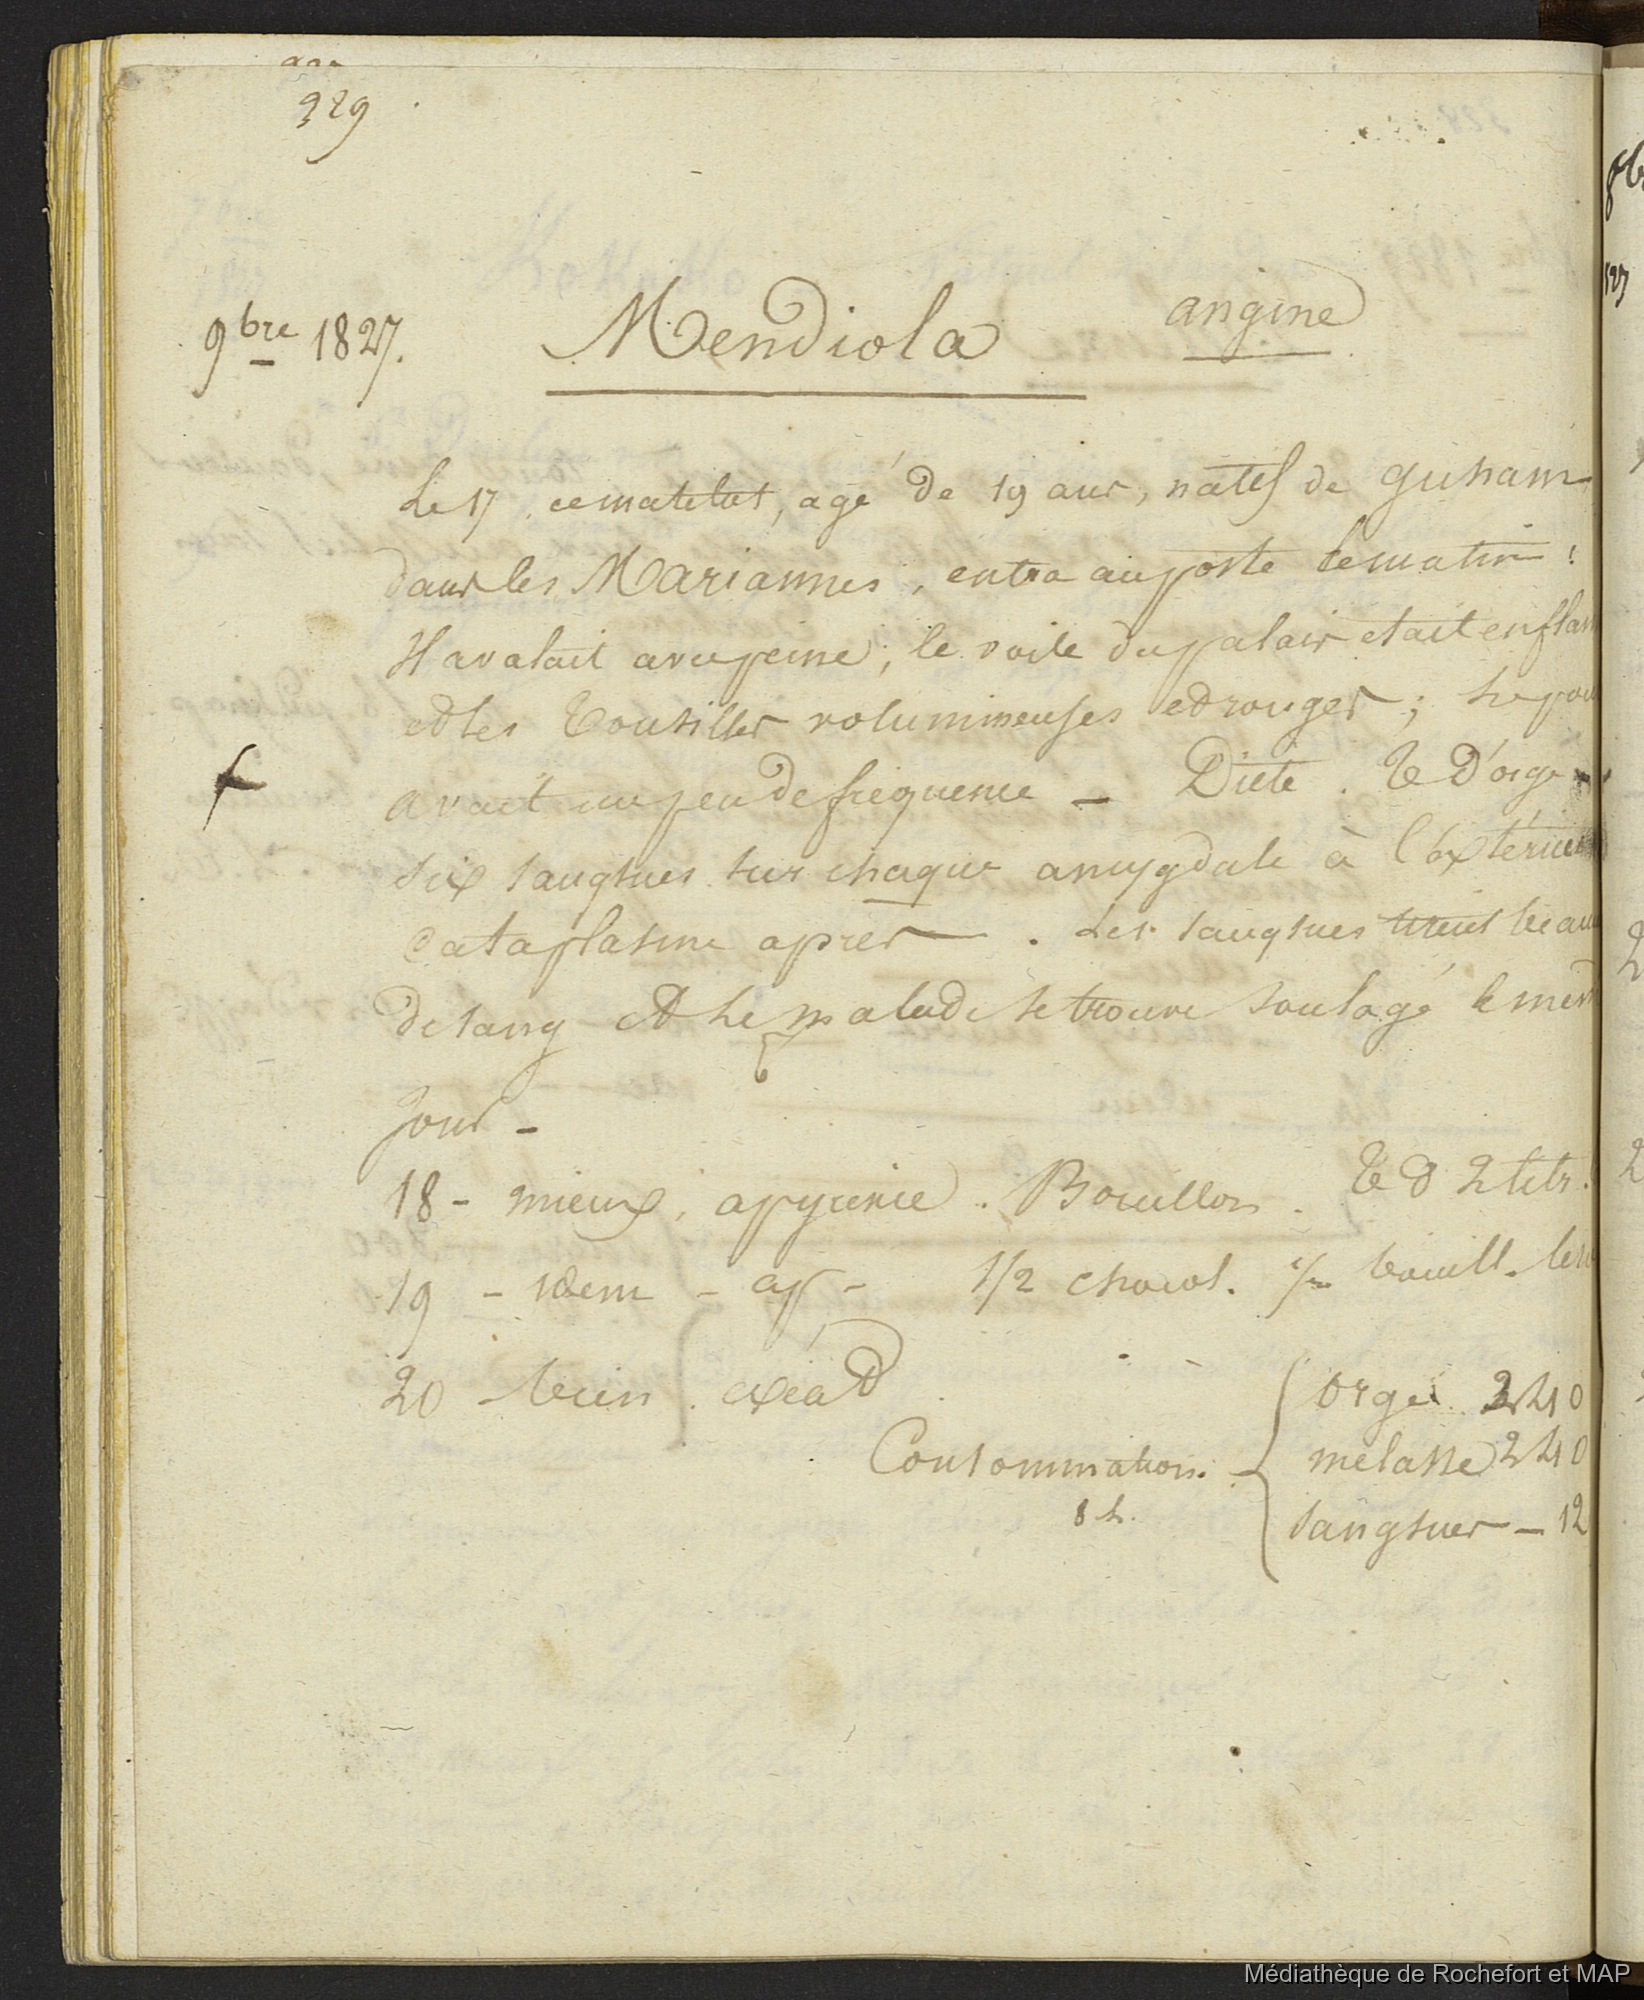 329
9bre 1827. Mendiola angine
Le 17 ce matelot, agé de 19 ans, natif de Guham
dans les Mariannes, entra au poste le matin:
Il avalait avec peine; le voile du palais etait enflam
et les tonsilles volumineuses et rouges; le pou
avait un peu de frequence - Diete. t d'orge
six sangsues sur chaque amygdale à l'extérieur
cataplasme apres. Les sangsues tirent beau
de sang et le malade se trouve soulagé le mem
jour -
18 - mieux, apyrexie. Bouillon. t d 2 litr.
19 - idem - ap - 1/2 chocol. bouill.
20 bien. exéat
Consommation. Orge 240
melasse 240
8 h.
sangsues - 12
Médiathèque de Rochefort et MAP